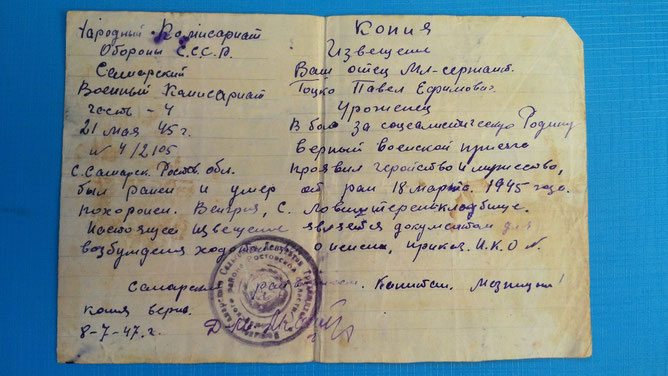 Народный Комисариат
Обороны С.С.С.Р.
Самарский
Военный Комисариат
часть - 4
21 мая 45 г.
№ 4/2105
С. Самарск. Рост. обл.
Копия
Извещение
Ваш отец Мл-сержант.
Тоцко Павел Ефимович.
Уроженец
В бою за социалистическую Родину
верный военской присяге
проявил геройство и мужество,
был ранен и умер от ран 18 марта. 1945 года.
похоронен. Венгрия, С. кладбище.
Настоящее извещение является документом для
возбуждения о пенсии, приказ. Н.К.О №.
Самарский рай Капитан.
копия верна.
8-7-47. г.